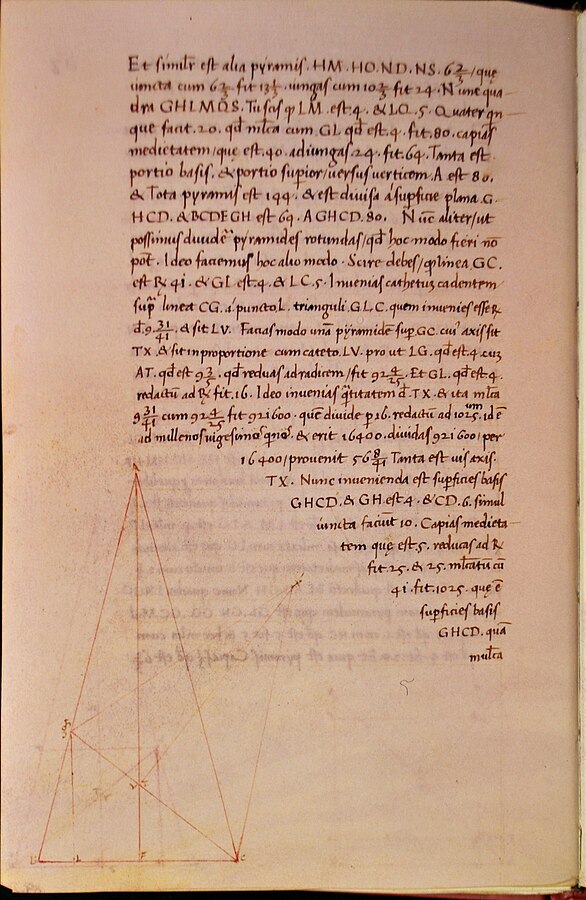 Et similr est alia pyramis. HM. HO. ND. NS. 6 2/3 / quę
iuncta cum 6 2/3 fit 13 1/3. iungas cum 10 2/3 fit 24. Nunc qua
dra GHLMQS. Tu scis qp LM. est. 4. & LQ. 5. Quater qn
que facit. 20. qd mlca cum GL qd est. 4. fit. 80. capias
medietatem / que est. 40. adiungas. 24. fit. 64. Tanta est
portio basis. & portio supior / versus verticem. A est 80.
& Tota pyramis est 144. & est divisa a supficie plana. G.
HCD. & BCDEGH est 64. AGHCD. 80. Nuc aliter / ut
possimus dividē pyramides rotundas / qd hoc modo fieri nō
pot. Ideo faciemus hoc alio modo. Scire debes / qp linea GC.
est ℞ 41. & GL est. 4. & LC. 5. Invenias cathetus cadentem
sup linea CG. a puncto. L. trianguli. GLC. quem invenies esse ℞
d. 9 31/41. & sit LV. Facias modo unā pyramidē sup GC. cui axis sit
TX. & sit in proportione cum cateto. LV. pro ut LG. qd est. 4. cuȝ
AT. qd est 9 3/5. qd reduas ad radicem / fit 92 4/25. Et GL. qd est. 4.
redactū ad ℞ fit. 16. Ideo invenias qtitatem d. TX. & ita mlca
9 31/41 cum 92 4/25 fit 921600. quē divide p 16. redactū ad 1025. id ē
ad millenos vigesimoqnos. & erit 16400. dividas 921600 / per
16400 / provenit 56 8/41 Tanta est vis axis.
TX. Nunc invenienda est supficies basis
GHCD. & GH est 4. & CD. 6. simul
iuncta faciūt 10. Capias medieta
tem quę est. 5. reducas ad ℞
fit. 25. & 25. mlcatū cū
41. fit. 1025. quę ē
supficies basis
GHCD. quā
mulca
A
B L F C